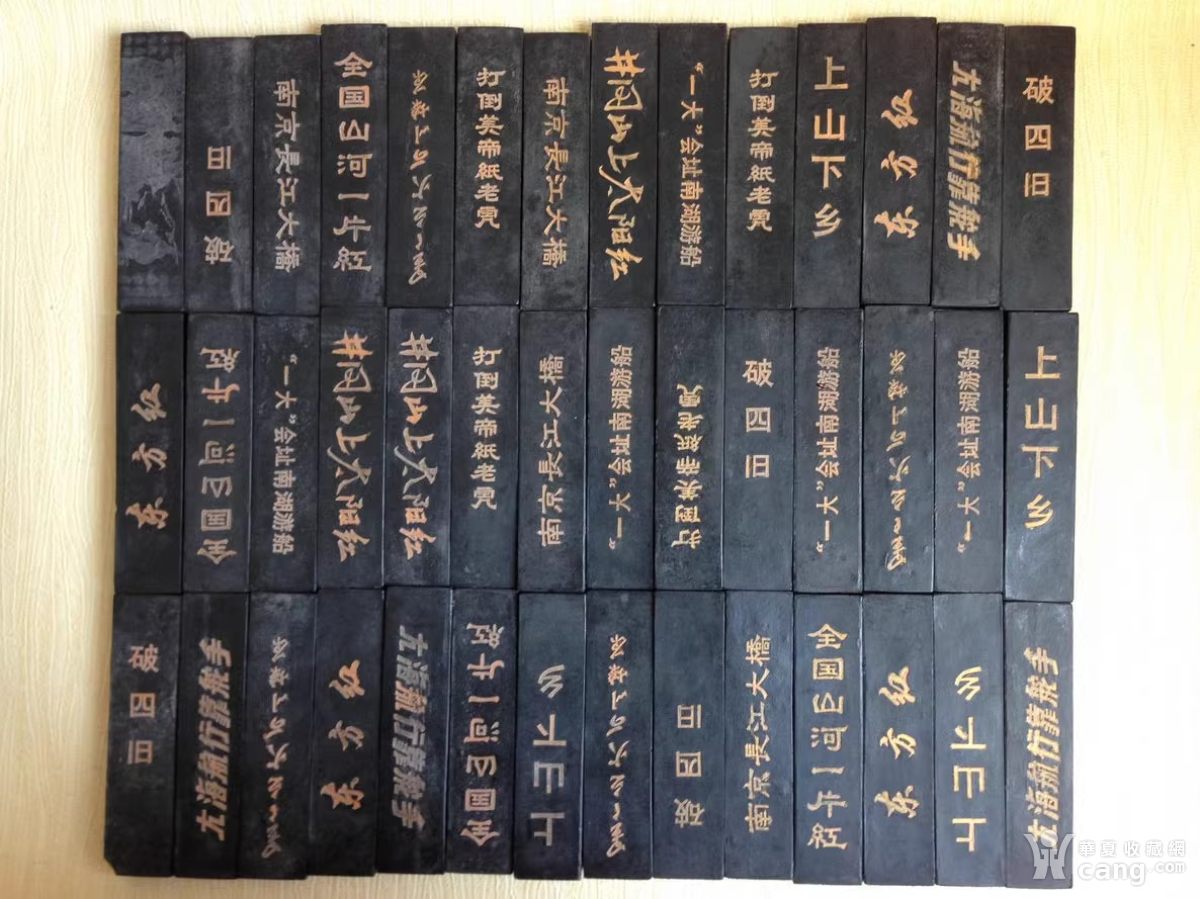 破四旧
南京長江大橋
全国山河一片紅
打倒美帝紙老虎
南京長江大橋
井冈山上太阳红
“一大”会址南湖游船
打倒美帝紙老虎
上山下乡
东方红
大海航行靠舵手
破四旧
东方红
全国山河一片紅
“一大”会址南湖游船
井冈山上太阳红
井冈山上太阳红
打倒美帝紙老虎
南京長江大橋
“一大”会址南湖游船
打倒美帝紙老虎
破四旧
“一大”会址南湖游船
“一大”会址南湖游船
上山下乡
破四旧
大海航行靠舵手
东方红
大海航行靠舵手
全国山河一片紅
上山下乡
破四旧
南京長江大橋
全国山河一片紅
东方红
上山下乡
大海航行靠舵手
華夏收藏網
cang.com